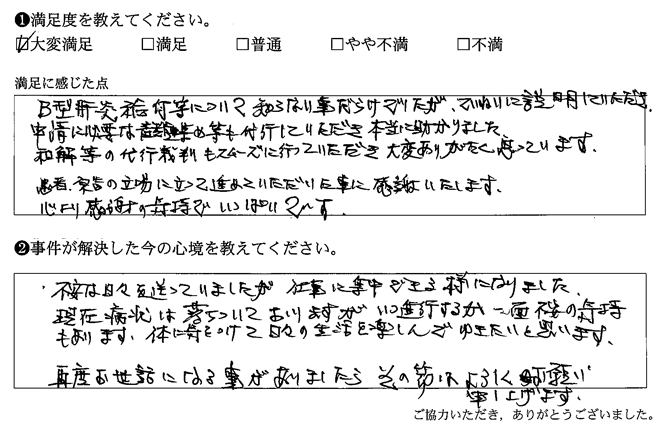 ❶満足度を教えてください。
☑大変満足 □満足 □普通 □やや不満 □不満
満足に感じた点
B型肝炎給付等について知らない事だらけでしたが、ていねいに説明していただき
申請に必要な書類集め等も代行していただき本当に助かりました
和解等の代行裁判もスムーズに行っていただき大変ありがたく思っています。
患者、原告の立場に立って進めていただいた事に感謝いたします。
心より感謝の気持でいっぱいです。
❷事件が解決した今の心境を教えてください。
・不安な日々を送っていましたが仕事に集中できる様になりました、
現在病状は落ちついておりますがいつ進行するか一面不安の気持
もあります、体に気をつけて日々の生活を楽しんでゆきたいと思います、
再度お世話になる事がありましたらその節はよろしくお願い
申し上げます.
ご協力いただき，ありがとうございました。